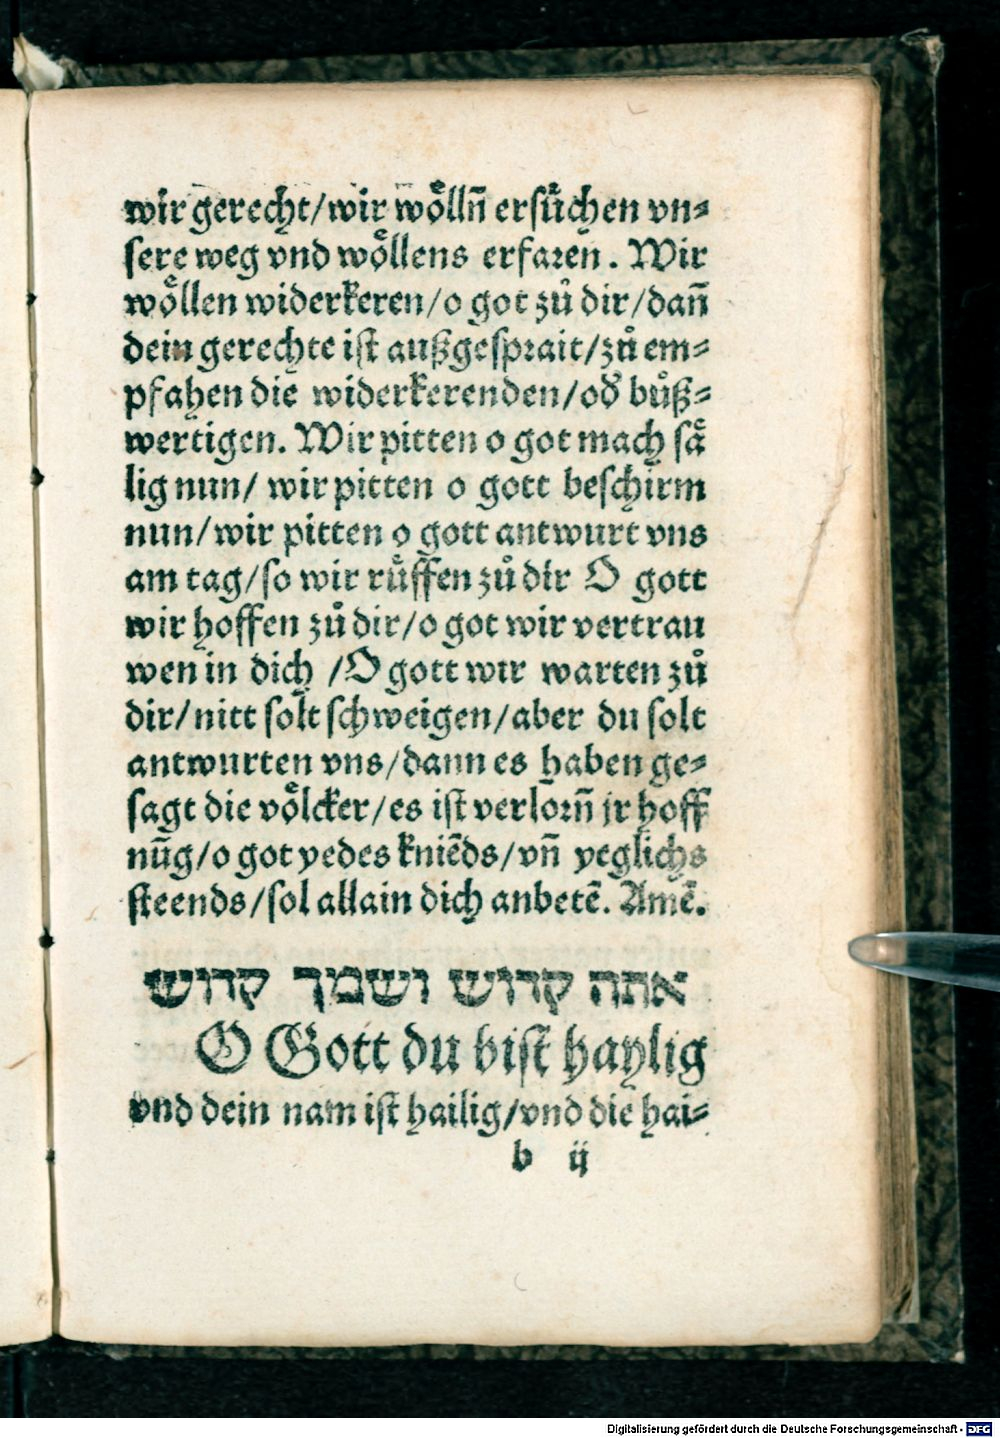 wir gerecht/wir woͤlln̄ erſuͤchen vn⸗
ſere weg vnd woͤllens erfaꝛen. Wir
woͤllen widerkeren/o got zů dir/dañ
dein gerechte iſt außgeſpꝛait/zů em⸗
pfahen die widerkerenden/od̕ bůß⸗
wertigen. Wir pitten o got mach ſaͤ
lig nun/ wir pitten o gott beſchirm
nun/wir pitten o gott antwurt vns
am tag/ſo wir ruͤffen zů dir O gott
wir hoffen zů dir/o got wir vertrau
wen in dich /O gott wir warten zů
dir/nitt ſolt ſchweigen/aber du ſolt
antwurten vns/dann es haben ge⸗
ſagt die voͤlcker/es iſt verloꝛn̄ jr hoff
nūg/o got yedes kniēds/vn̄ yeglichs
ſteends/ſol allain dich anbetē. Amē.
אתה קדוש ושמך קדוש
O Gott du biſt haylig
vnd dein nam iſt hailig/vnd die hai⸗
b ij
Digitalisierung gefördert durch die Deutsche Forschungsgemeinschaft - DFG